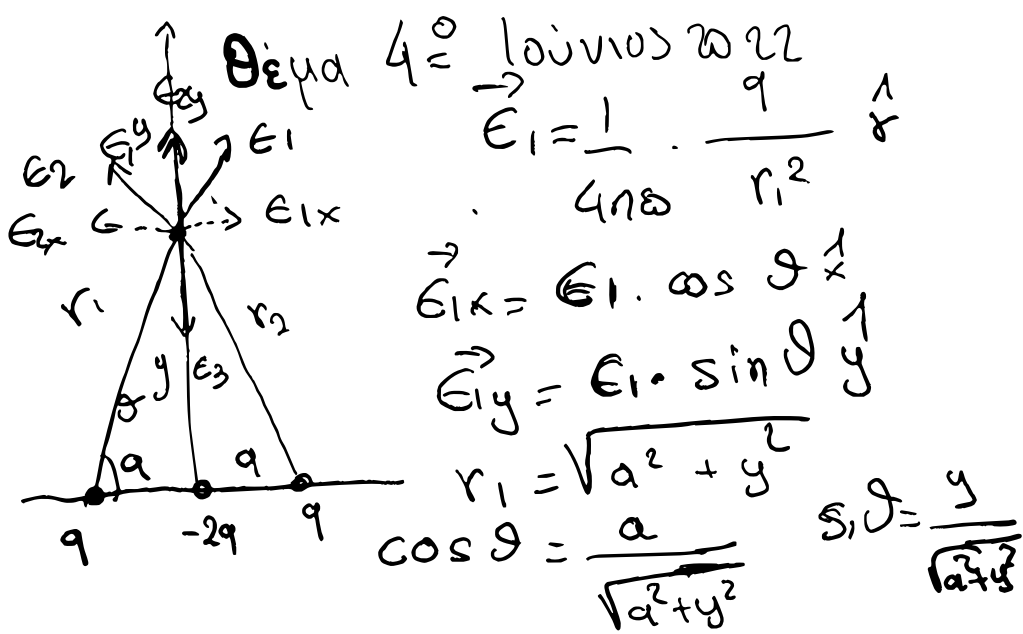 θέμα 4º Ιούνιος 2022
ϵ2y
ϵ1y ϵ1
ϵ2
ϵ2x ϵ1x
r1 r2
y ϵ3
θ a a
q -2q q
ϵ⃗1 = 1/4πε0 · q/r1² r̂
ϵ⃗1x = ϵ1 · cos θ x̂
ϵ⃗1y = ϵ1 · sin θ ŷ
r1 = √(a² + y²)
cos θ = a/√(a²+y²) siθ = y/√(a²+y²)